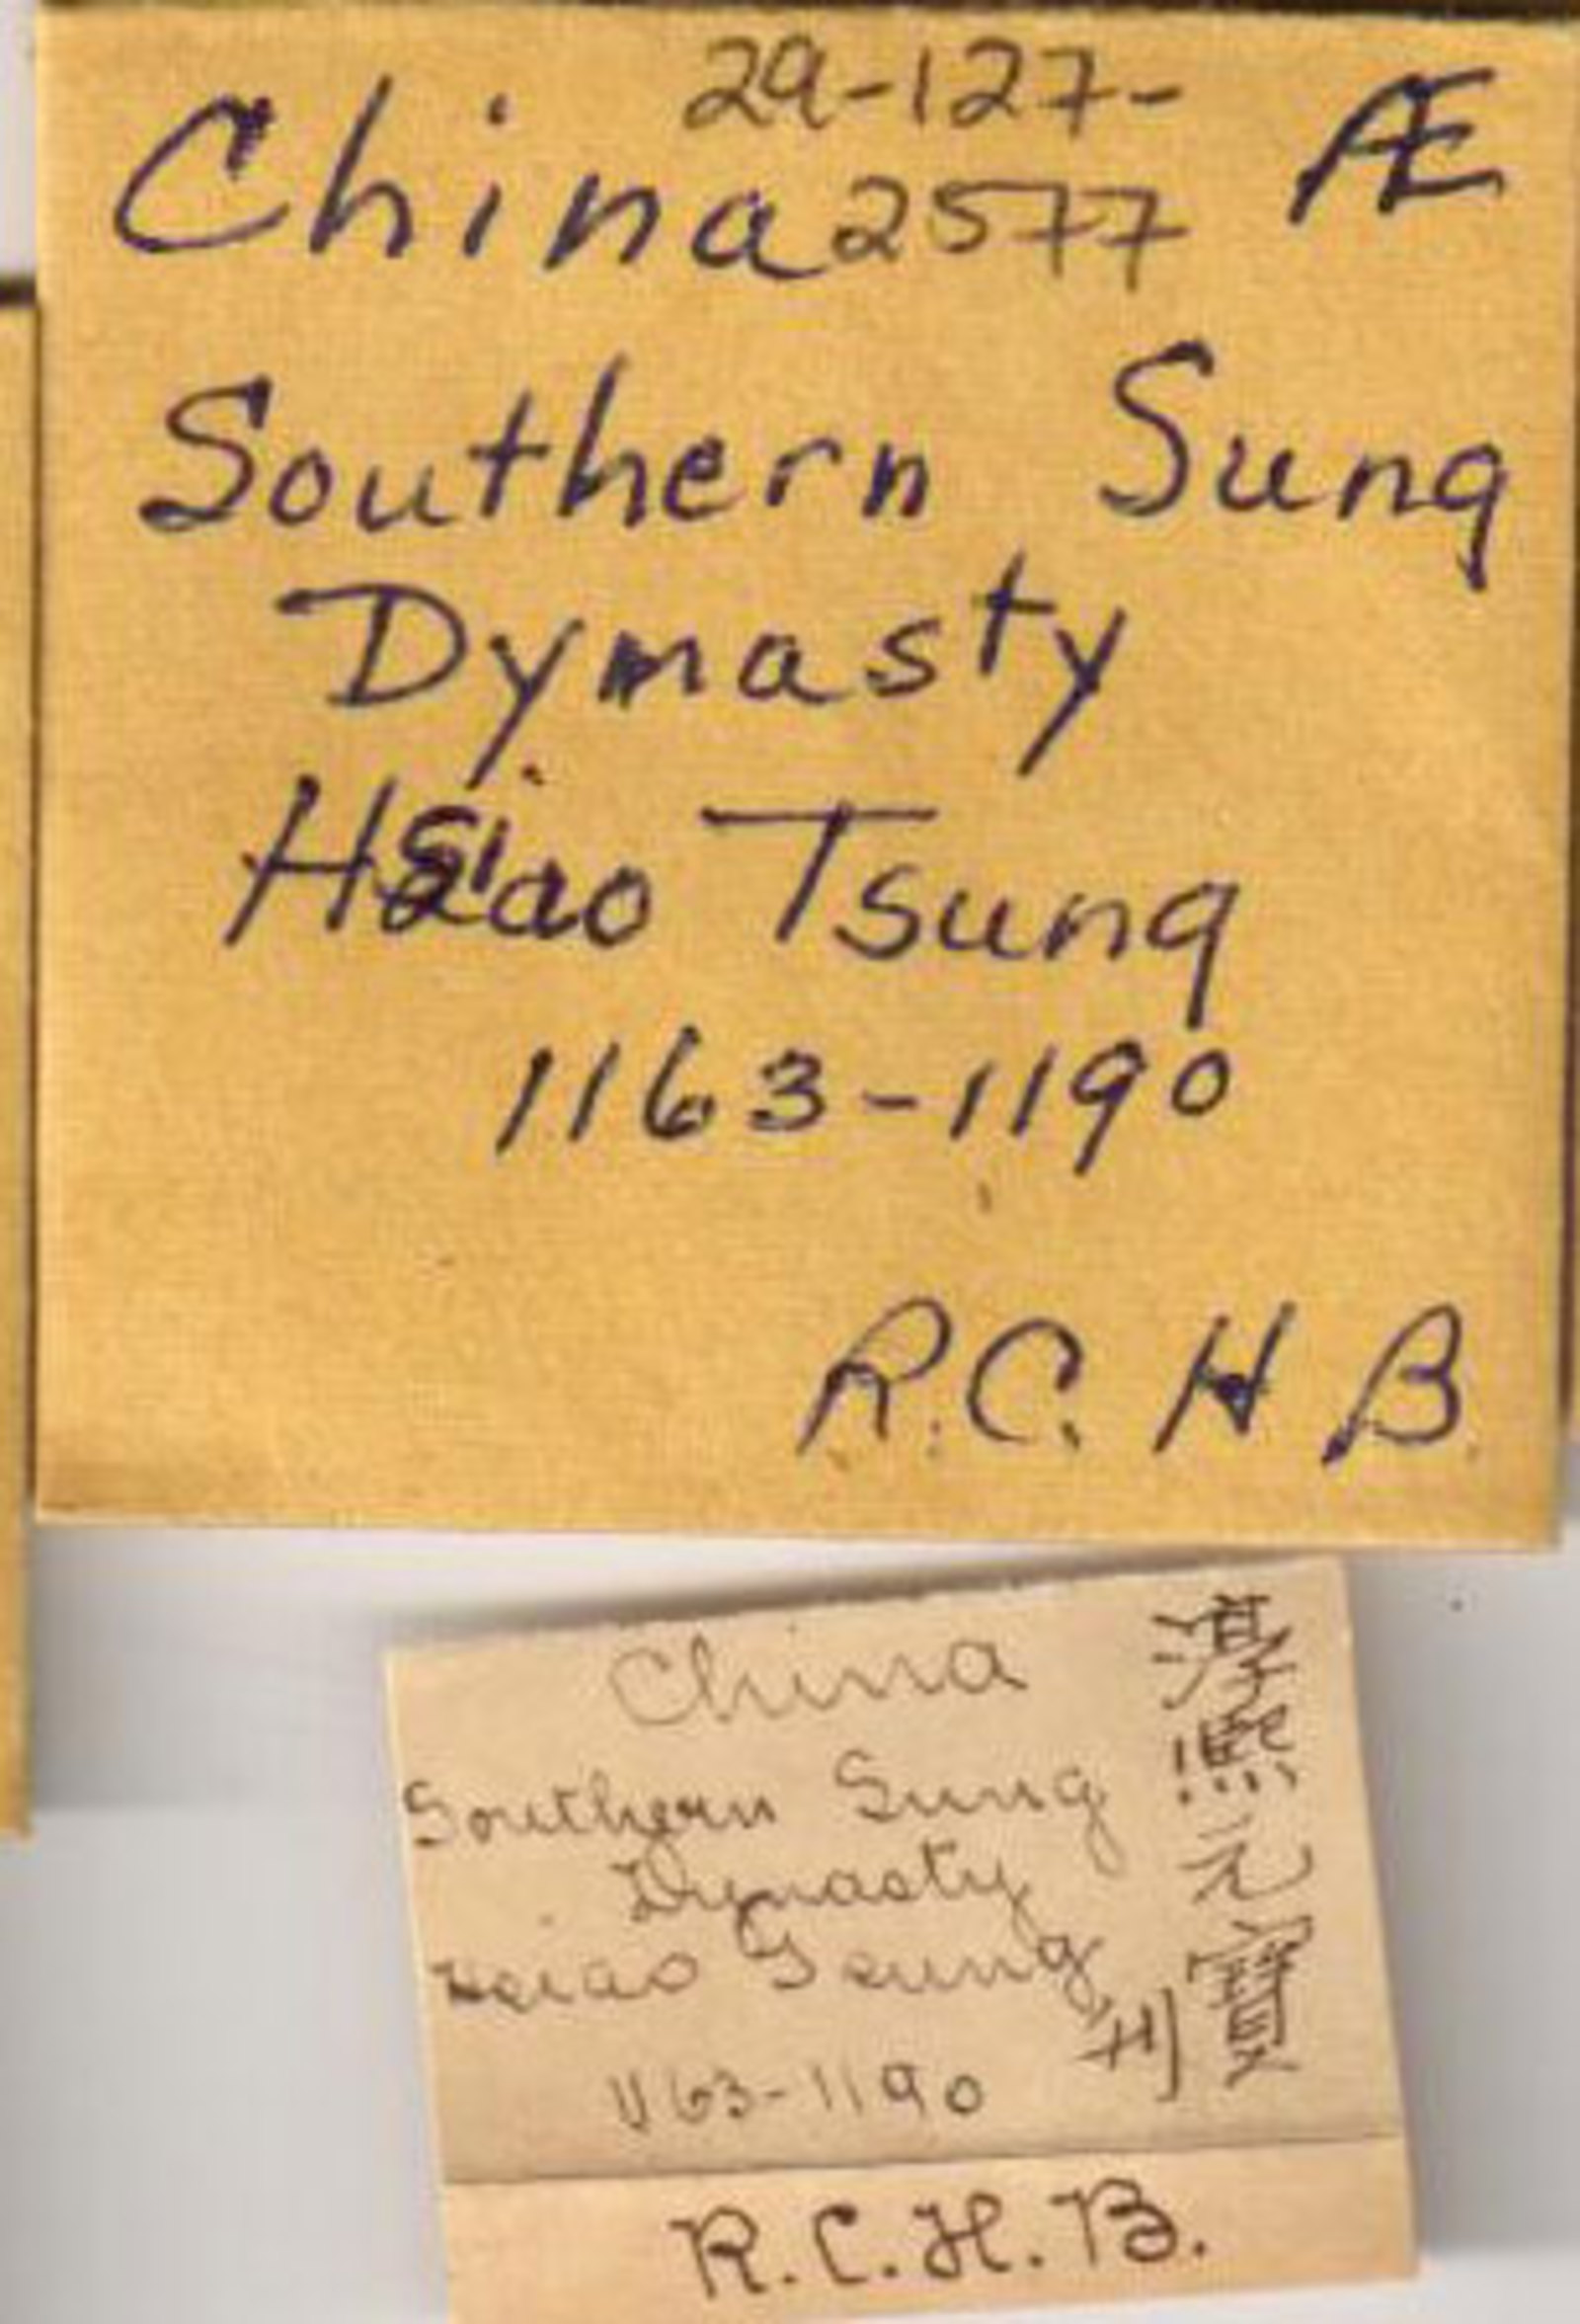 29-127-
China 2577 Æ
Southern Sung
Dynasty
Hsiao Tsung
1163-1190
R.C. H B.
China
Southern Sung
Dynasty
Hsiao Tsung
1163-1190
淳熙元寶
R.C.H.B.